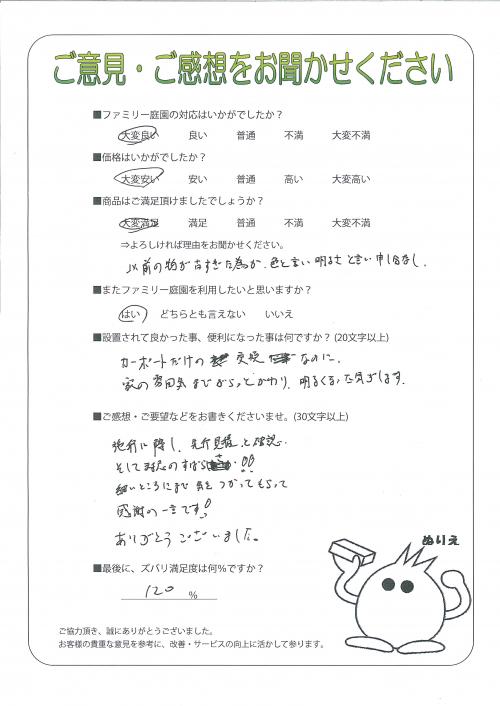 ご意見・ご感想をお聞かせください
■ファミリー庭園の対応はいかがでしたか？
大変良い 良い 普通 不満 大変不満
■価格はいかがでしたか？
大変安い 安い 普通 高い 大変高い
■商品はご満足頂けましたでしょうか？
大変満足 満足 普通 不満 大変不満
⇒よろしければ理由をお聞かせください。
以前の物が古すぎた為か、色と言い明るさと言い申し分なし。
■またファミリー庭園を利用したいと思いますか？
はい どちらとも言えない いいえ
■設置されて良かった事、便利になった事は何ですか？(20文字以上)
カーポートだけの 交換 なのに、
家の雰囲気までがらっとかわり、明るくなった気がします。
■ご感想・ご要望などをお書きくださいませ。(30文字以上)
施行に際し、 と確認。
そして のすばらしさ!!
細いところにまで気をつかってもらって
感謝の一言です!
ありがとうございました。
■最後に、ズバリ満足度は何％ですか？
120 ％
ぬりえ
ご協力頂き、誠にありがとうございました。
お客様の貴重な意見を参考に、改善・サービスの向上に活かして参ります。